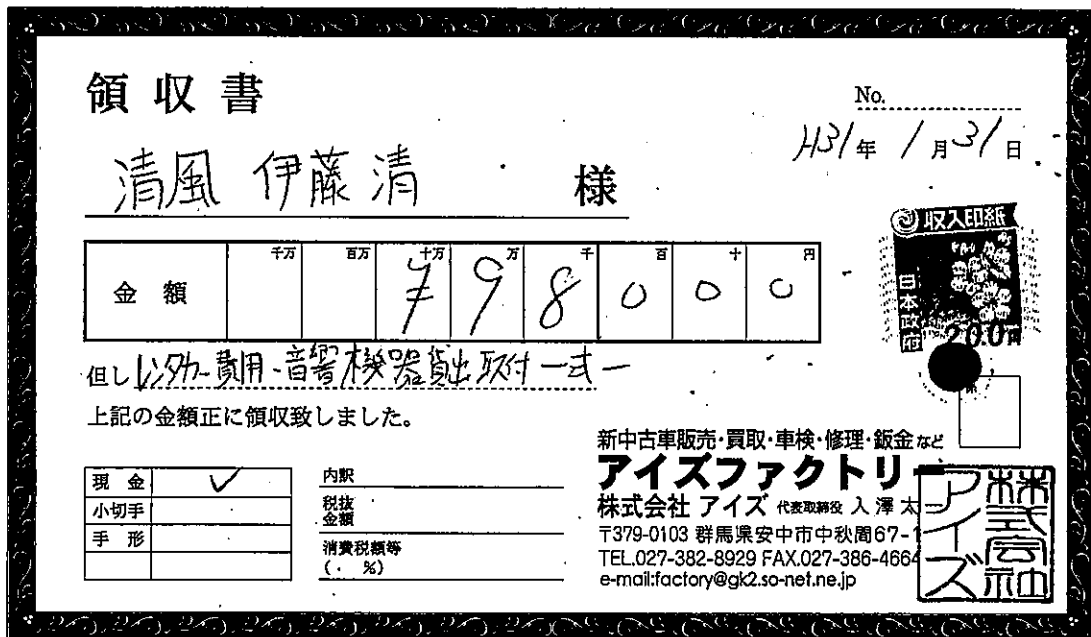 領収書
No.
H31年 1月31日
清風 伊藤清 様
金額 千万 百万 十万 万 千 百 十 円
¥98000
但し レンタカー費用・音響機器貸出取付一式
上記の金額正に領収致しました。
収入印紙
日本政府
200円
現金 ✓
小切手
手形
内訳
税抜金額
消費税額等
( . %)
新中古車販売・買取・車検・修理・鈑金など
アイズファクトリー
株式会社 アイズ 代表取締役 入澤太
〒379-0103 群馬県安中市中秋間67-1
TEL.027-382-8929 FAX.027-386-4664
e-mail:factory@gk2.so-net.ne.jp
株式会社アイズ